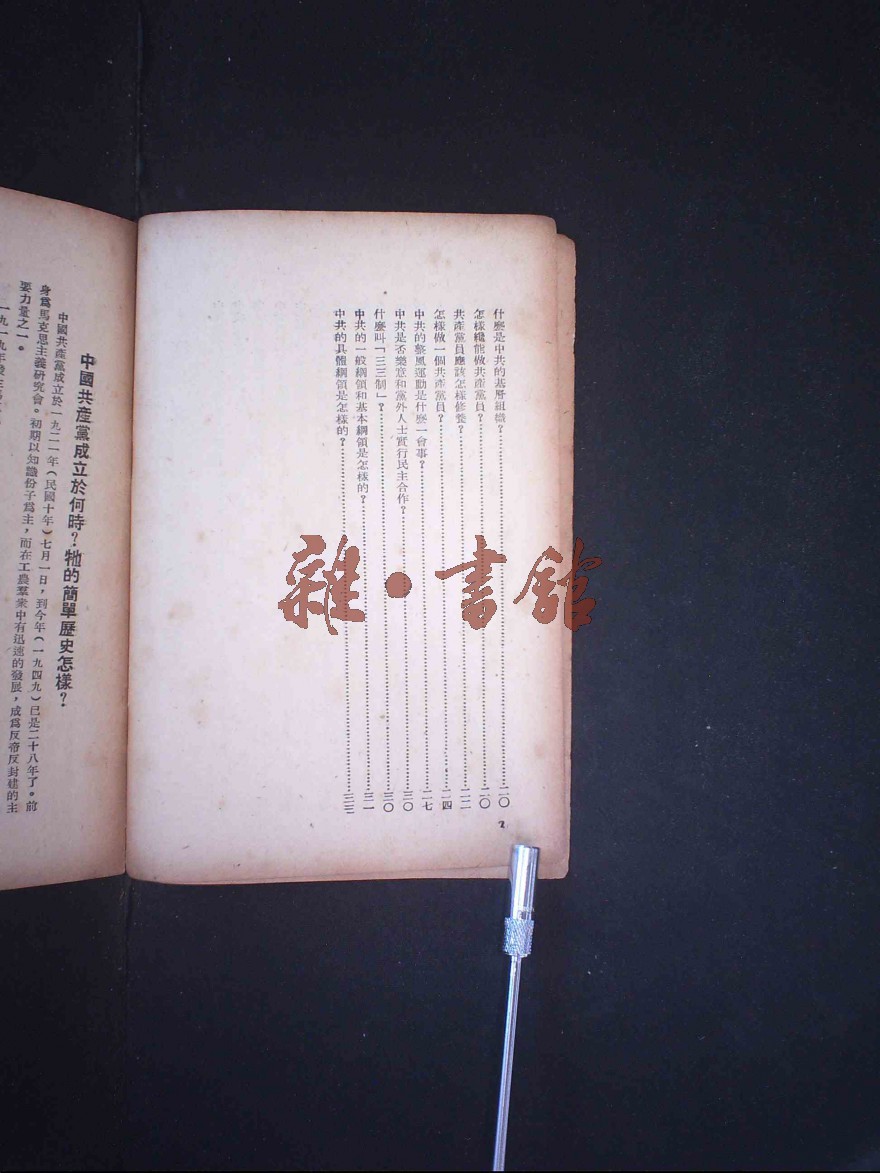 什麼是中共的基層組織？……二〇
怎樣纔能做共產黨員？……二〇
共產黨員應該怎樣修養？……二二
怎樣做一個共產黨員？……二四
中共的整風運動是什麼一會事？……二七
中共是否樂意和黨外人士實行民主合作？……三〇
什麼叫「三三制」？……三〇
中共的一般綱領和基本綱領是怎樣的？……三一
中共的具體綱領是怎樣的？……三三
2
中國共產黨成立於何時？牠的簡單歷史怎樣？
中國共產黨成立於一九二一年（民國十年）七月一日，到今年（一九四九）已是二十八年了。前
身爲馬克思主義研究會。初期以知識份子爲主，而在工農羣衆中有迅速的發展，成爲反帝反封建的主
要力量之一。
一九一九年
雜·書館